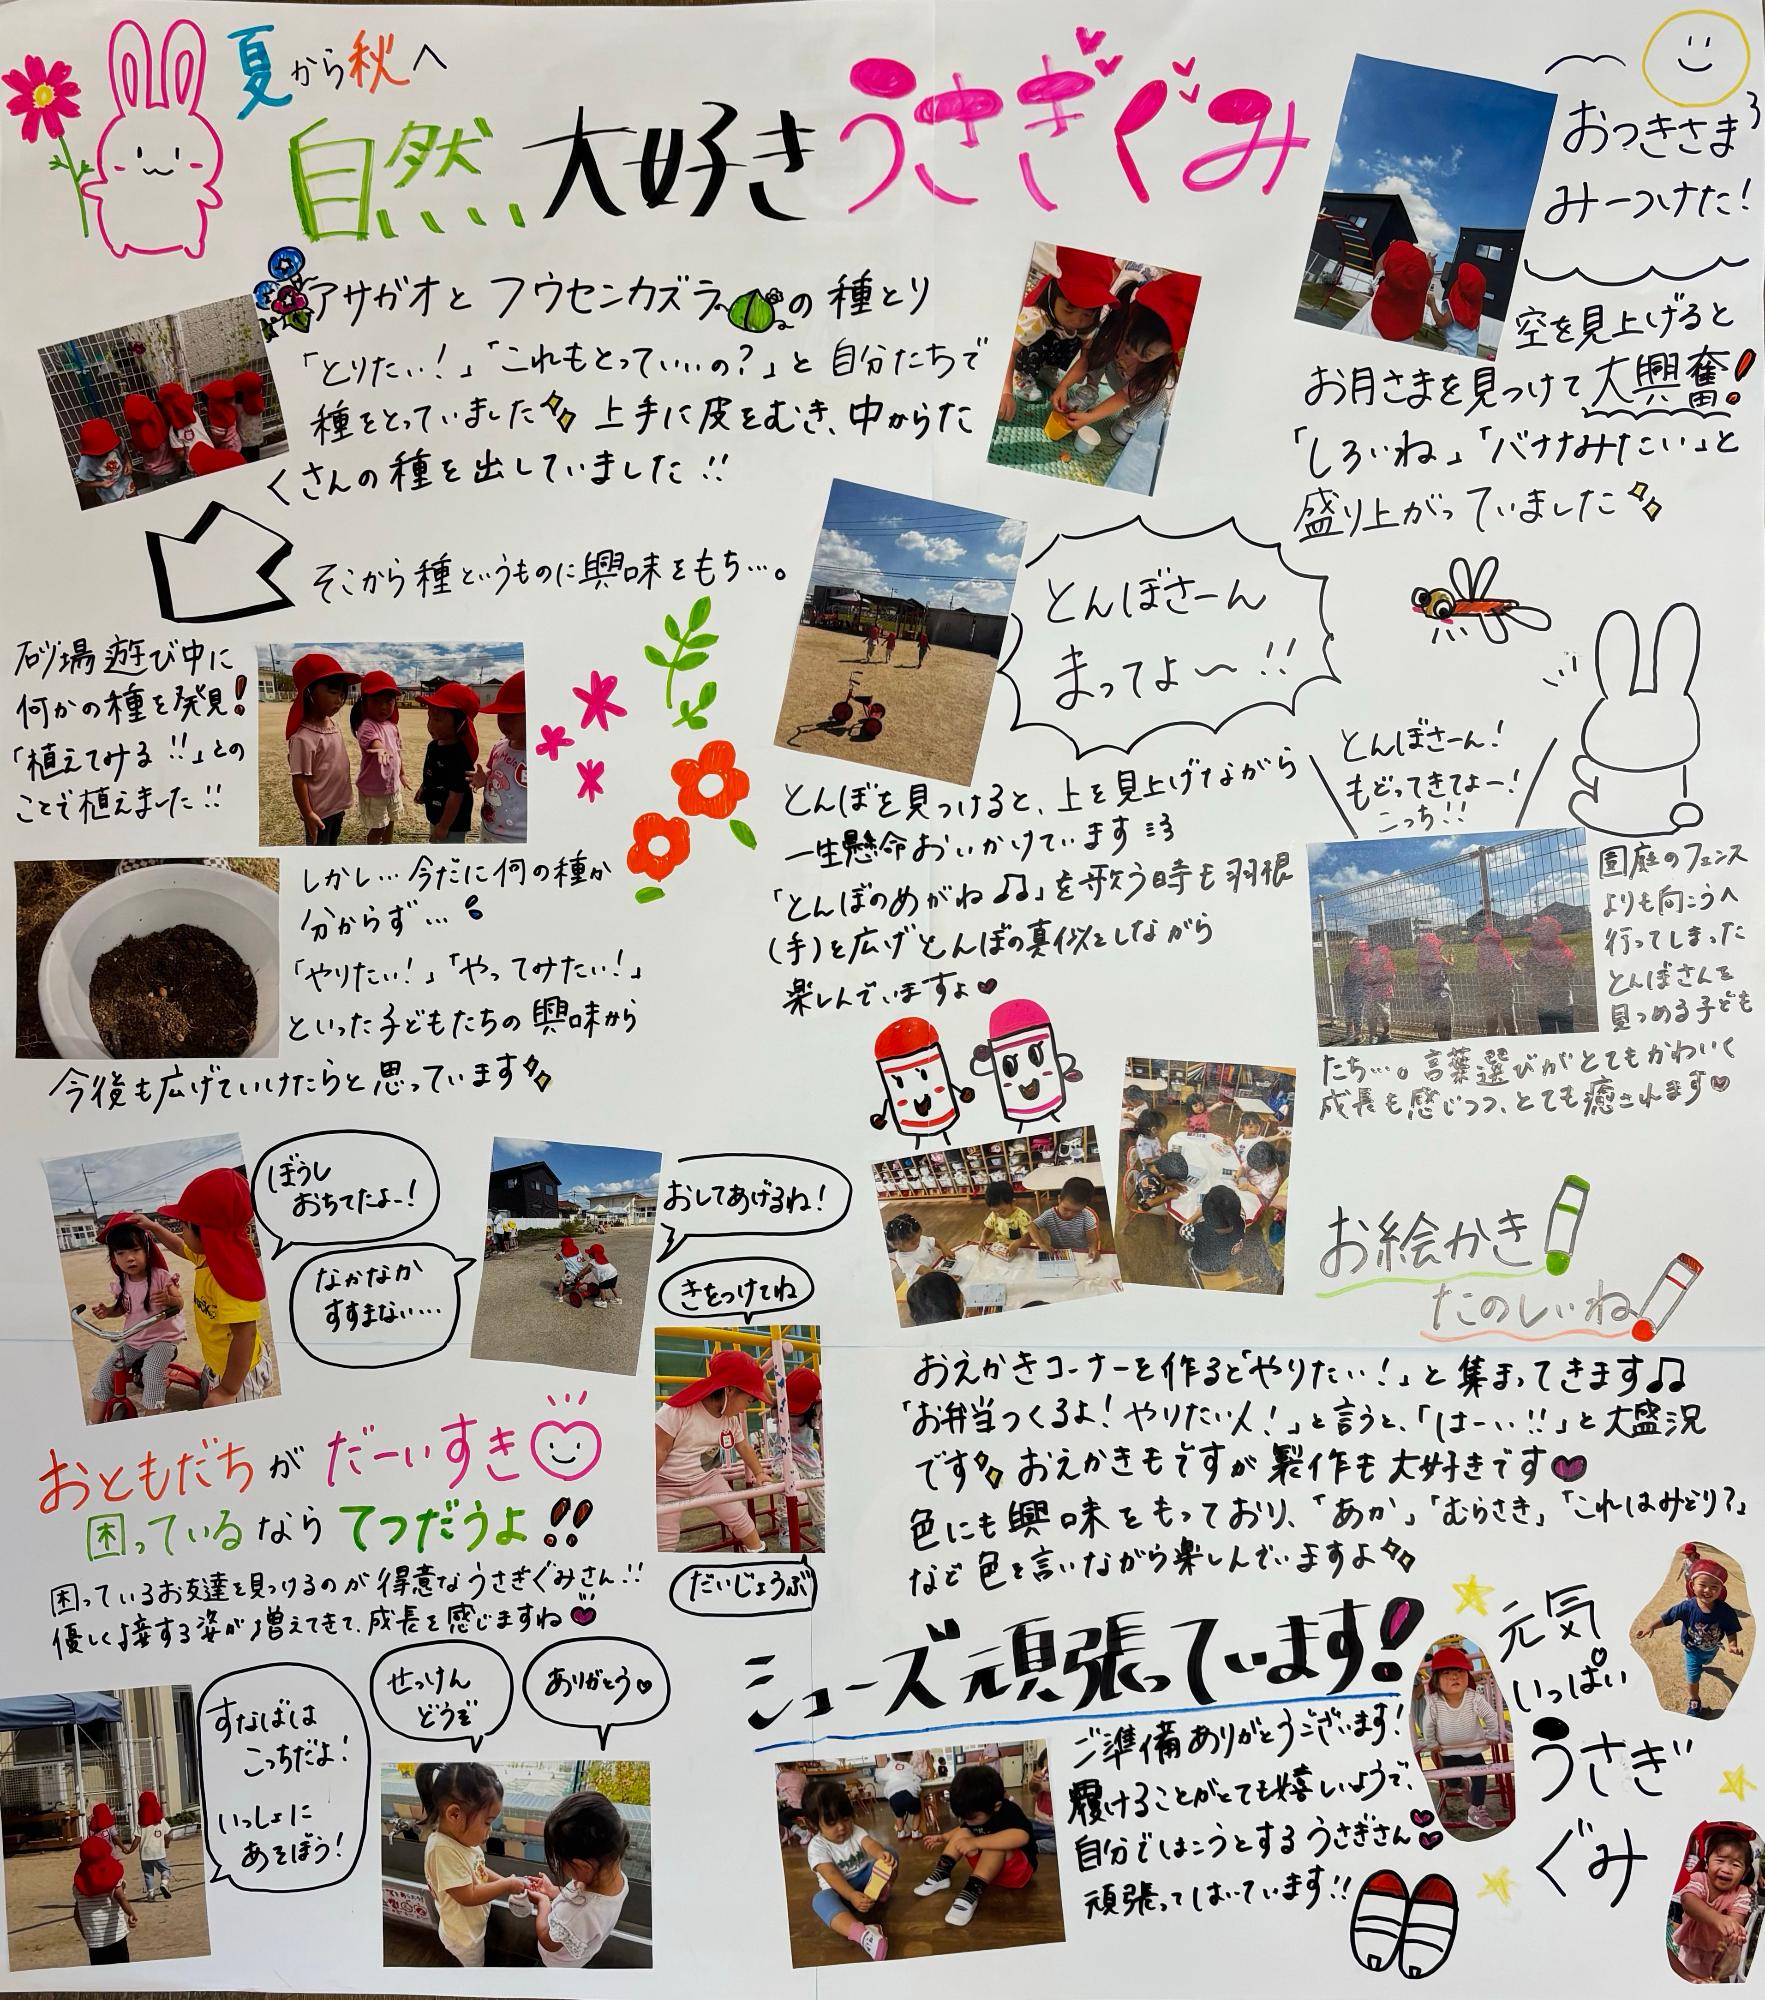 夏から秋へ
自然大好きうさぎぐみ
アサガオとフウセンカズラの種とり
「とりたい!」「これもとっていいの?」と自分たちで
種をとっていました 上手に皮をむき、中からた
くさんの種を出していました!!
そこから種というものに興味をもち…。
砂場遊び中に
何かの種を発見!
「植えてみる!!」との
ことで植えました!!
しかし…今だに何の種か
分からず…
「やりたい!」「やってみたい!」
といった子どもたちの興味から
今後も広げていけたらと思っています
おつきさま
みーつけた!
空を見上げると
お月さまを見つけて大興奮!
「しろいね」「バナナみたい」と
盛り上がっていました
とんぼさーん
まってよ〜!!
とんぼを見つけると、上を見上げながら
一生懸命おいかけています
「とんぼのめがね♫」を歌う時も羽根
(手)を広げとんぼの真似をしながら
楽しんでいますよ♥
とんぼさーん!
もどってきてよー!
こっち!!
園庭のフェンス
よりも向こうへ
行ってしまった
とんぼさんを
見つめる子ども
たち…。言葉選びがとてもかわいく
成長も感じつつ、とても癒されます♡
ぼうし
おちてたよー!
なかなか
すすまない…
おしてあげるね!
きをつけてね
だいじょうぶ
おともだちがだーいすき
困っているならてつだうよ!!
困っているお友達を見つけるのが得意なうさぎぐみさん!!
優しく接する姿が増えてきて、成長を感じますね♥
すなばは
こっちだよ!
いっしょに
あそぼう!
せっけん
どうぞ
ありがとう♡
お絵かき
たのしいね
おえかきコーナーを作ると「やりたい!」と集まってきます♫
「お弁当つくるよ!やりたい人!」と言うと、「はーい!!」と大盛況
です おえかきもですが製作も大好きです♥
色にも興味をもっており、「あか」「むらさき」「これはみどり?」
など色を言いながら楽しんでいますよ
シューズ頑張っています!
ご準備ありがとうございます!
履けることがとても嬉しいようで、
自分ではこうとするうさぎさん
頑張ってはいています!!
元気
いっぱい
うさぎ
ぐみ